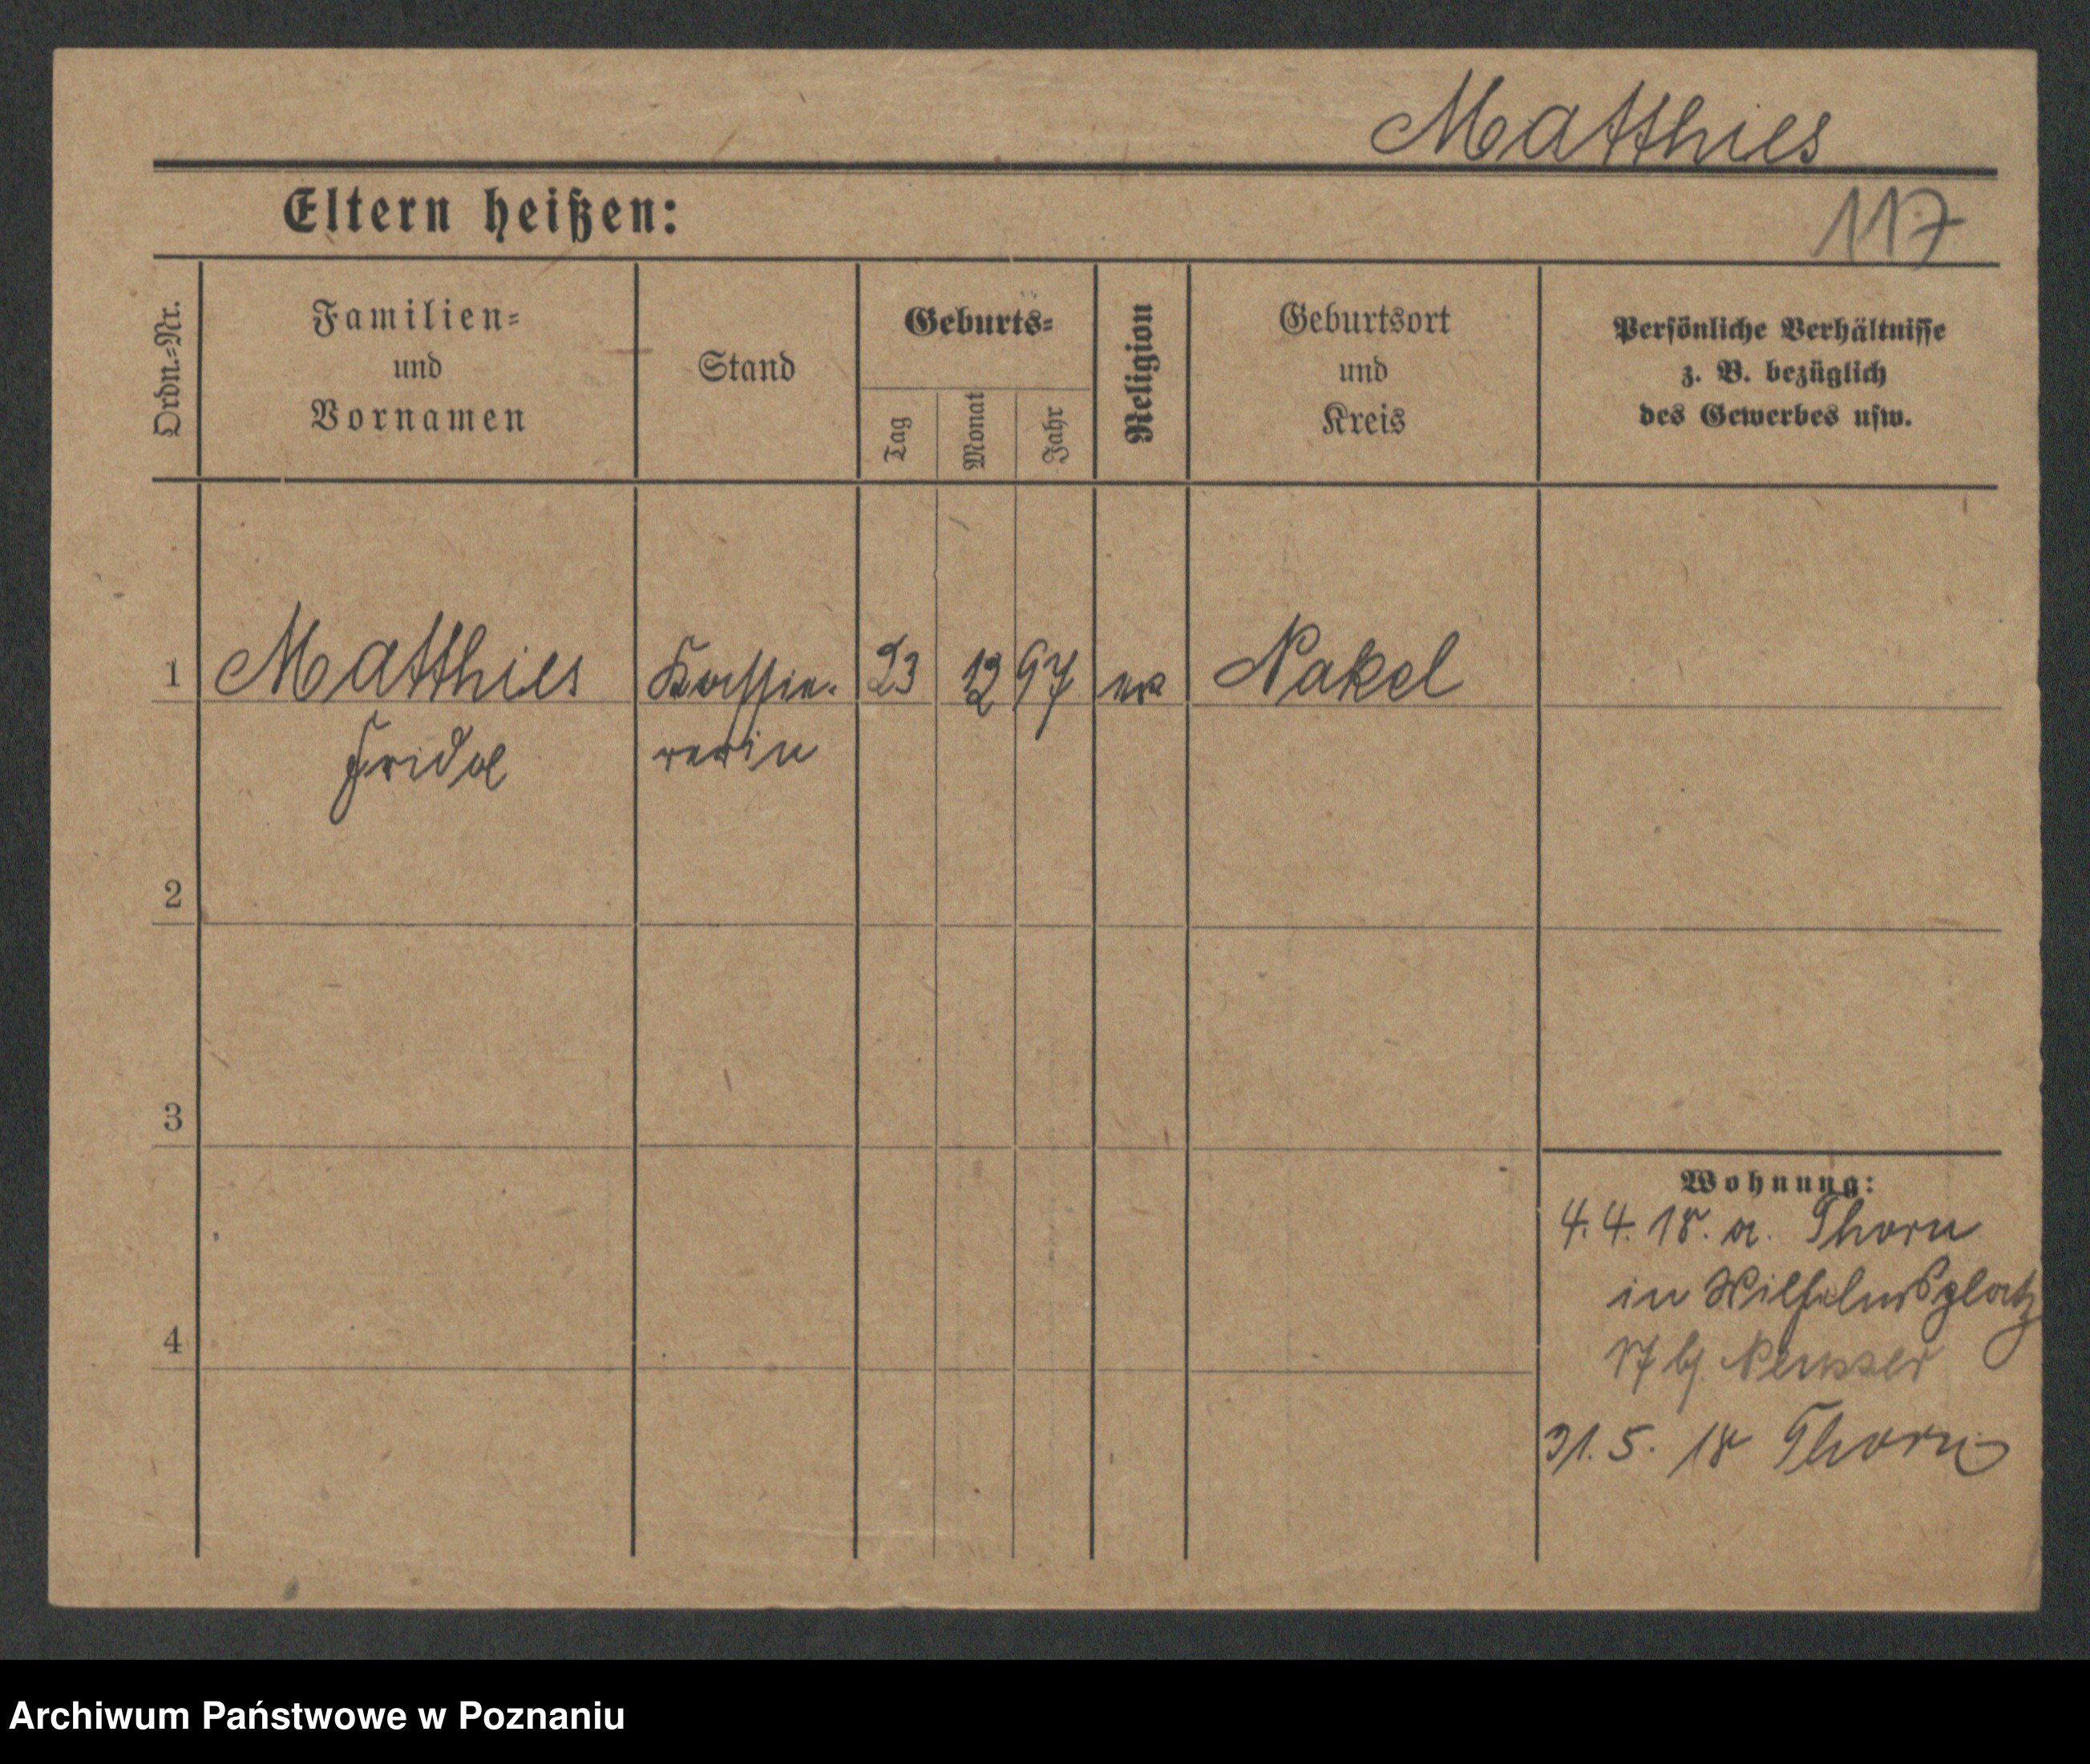 Matthies
Eltern heißen:
117
Ordn.=Nr.
Familien=
und
Vornamen
Stand
Geburts=
Tag
Monat
Jahr
Religion
Geburtsort
und
Kreis
Persönliche Verhältnisse
z. B. bezüglich
des Gewerbes usw.
1 Matthies Kassie- 23 12 97 Nakel
Frida rerin
2
3
4
Wohnung:
4.4.18. a. Thorn
in Wilhelmsplatz
17 bj.
31.5. 18 Thorn
Archiwum Państwowe w Poznaniu